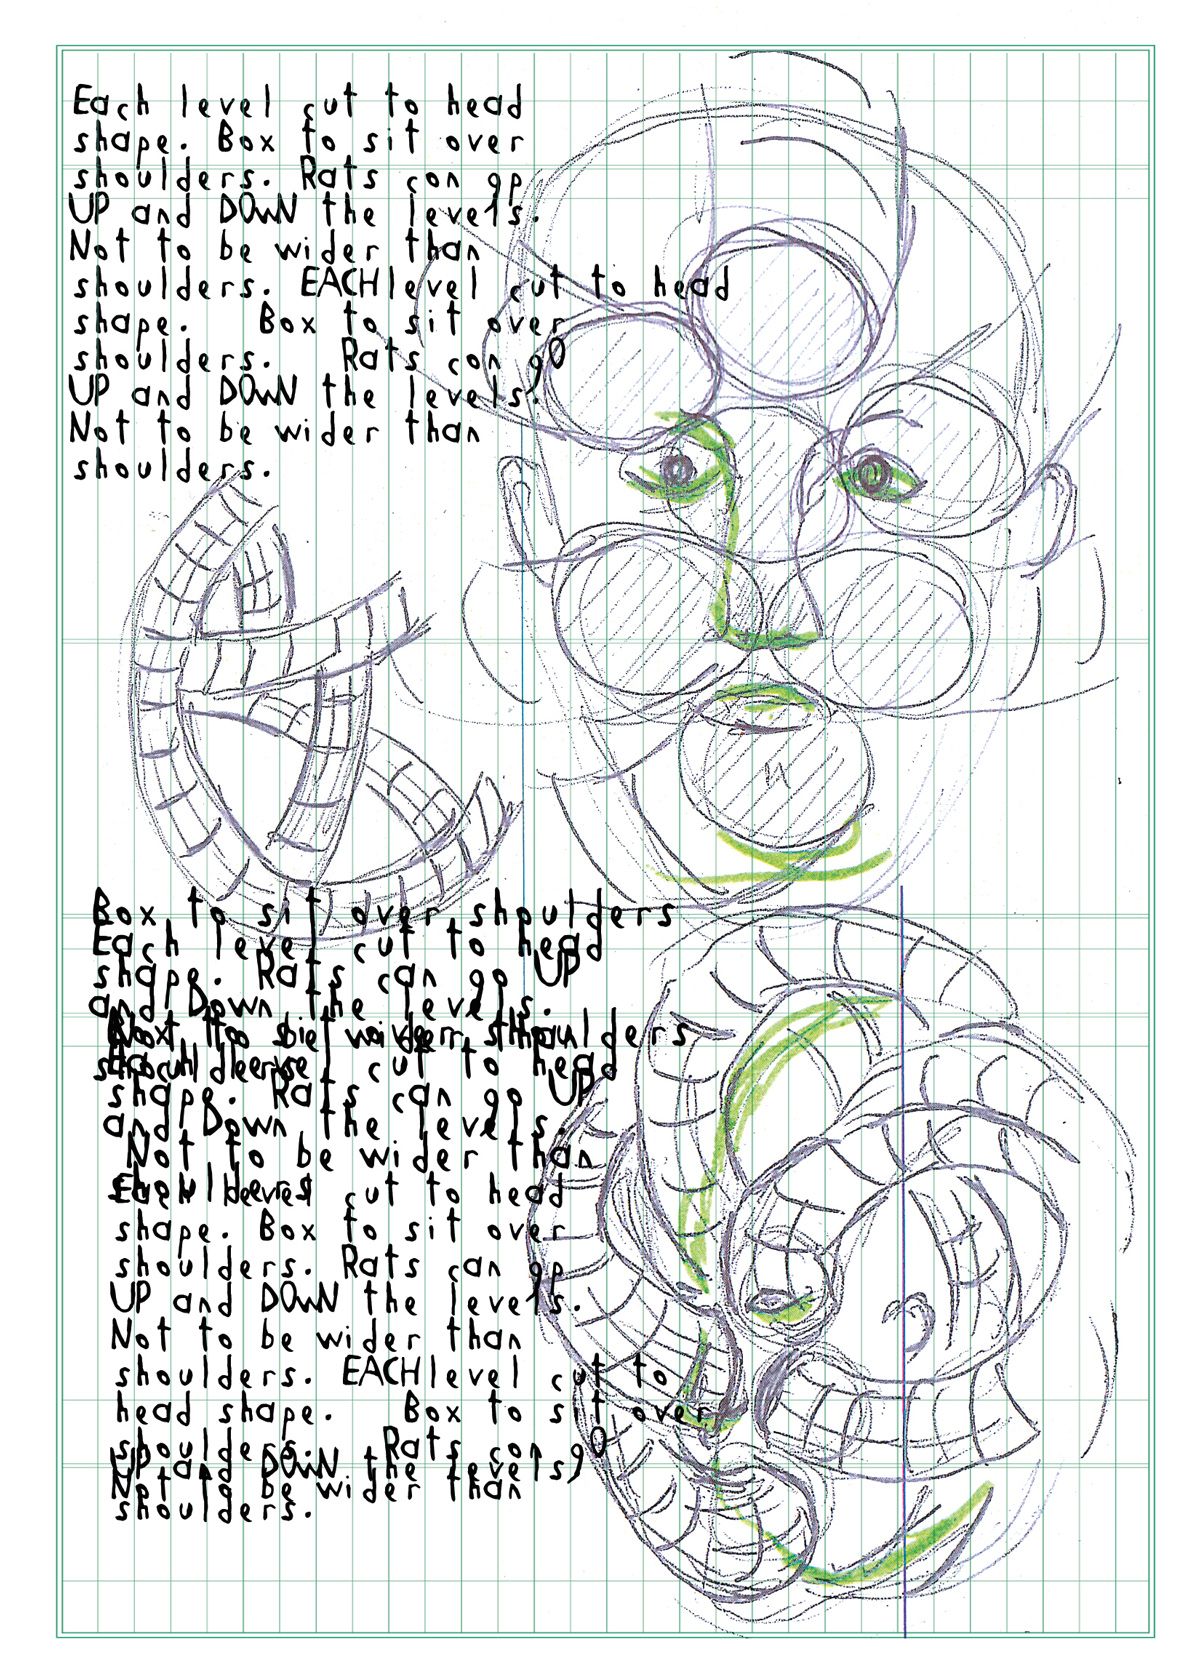 Each level cut to head
shape. Box to sit over
shoulders. Rats con go
UP and DOwN the levels.
Not to be wider than
shoulders. EACH level cut to head
shape. Box to sit over
shoulders. Rats con gO
UP and DOwN the levels.
Not to be wider than
shoulders.
Box to sit over shoulders
Each level cut to head
shape. Rats can go UP
and Down the levels.
shoulders
cut to head
shape. Rats can go UP
and Down the levels.
Not to be wider than
cut to head
shape. Box to sit over
shoulders. Rats can go
UP and DOwN the levels.
Not to be wider than
shoulders. EACH level cut to
head shape. Box to sit over
shoulders. Rats con gO
UP and DOwN the levels
Not to be wider than
shoulders.